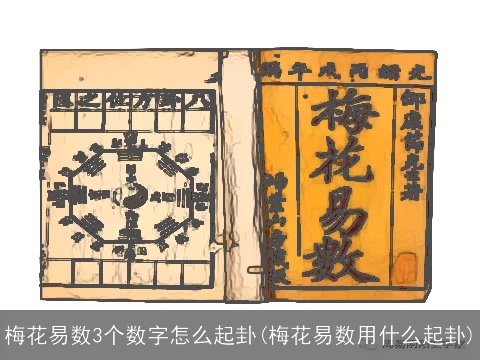 光緒丙戌年鐫
邵康節先生著
梅花易數
八卦方位之圖
梅花易数3个数字怎么起卦(梅花易数用什么起卦)